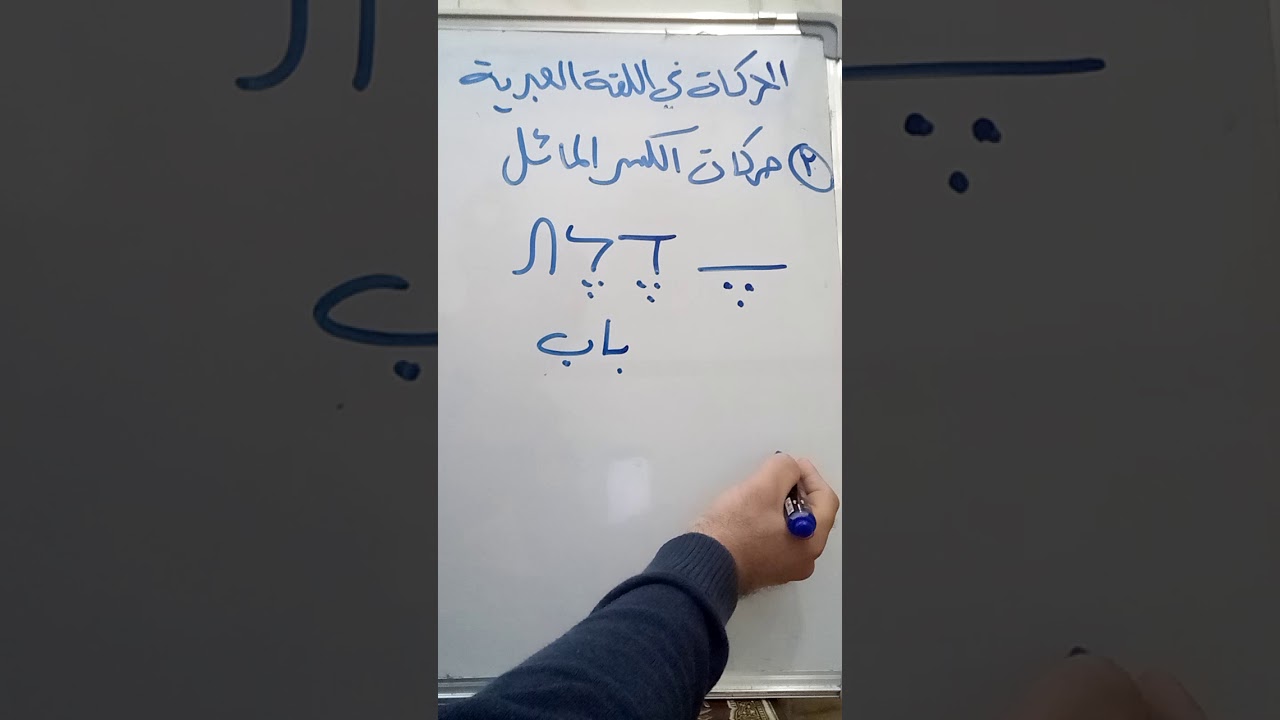 الحركات في اللغة العبرية
٢ حركات الكسر المائل
ֶ דֶלֶת
باب